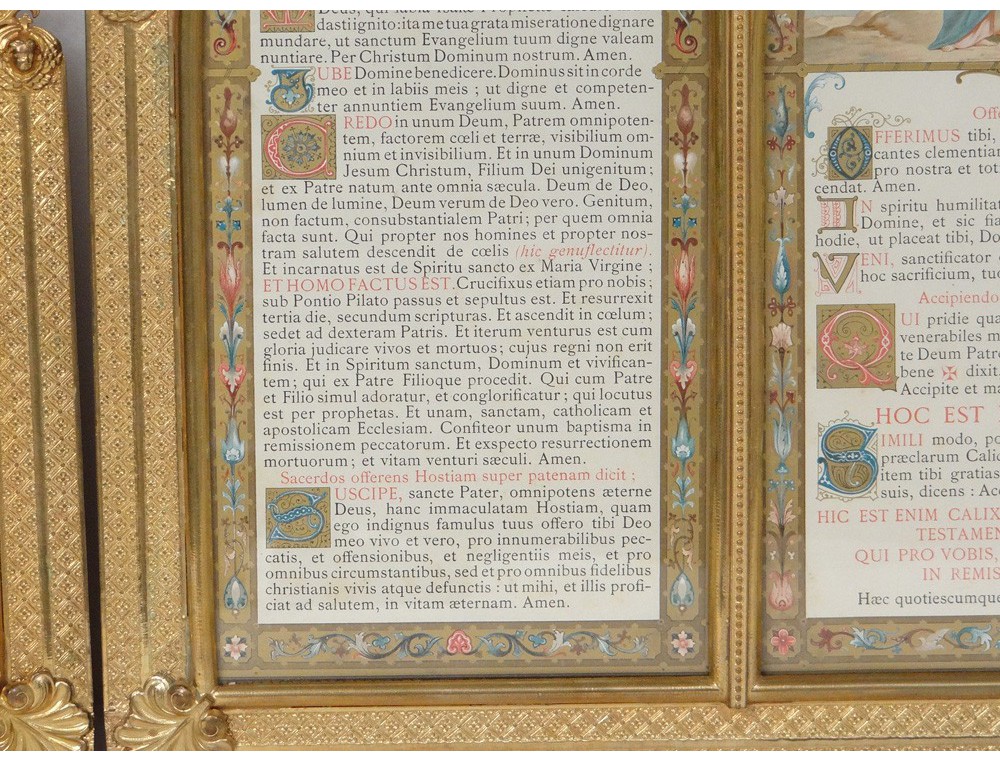 Deus, qui labia Isaiæ Prophetæ
dasti ignito: ita me tua grata miseratione dignare
mundare, ut sanctum Evangelium tuum digne valeam
nuntiare. Per Christum Dominum nostrum. Amen.
JUBE Domine benedicere. Dominus sit in corde
meo et in labiis meis ; ut digne et competen-
ter annuntiem Evangelium suum. Amen.
CREDO in unum Deum, Patrem omnipoten-
tem, factorem cœli et terræ, visibilium om-
nium et invisibilium. Et in unum Dominum
Jesum Christum, Filium Dei unigenitum ;
et ex Patre natum ante omnia sæcula. Deum de Deo,
lumen de lumine, Deum verum de Deo vero. Genitum,
non factum, consubstantialem Patri ; per quem omnia
facta sunt. Qui propter nos homines et propter nos-
tram salutem descendit de cœlis (hic genuflectitur).
Et incarnatus est de Spiritu sancto ex Maria Virgine ;
ET HOMO FACTUS EST. Crucifixus etiam pro nobis ;
sub Pontio Pilato passus et sepultus est. Et resurrexit
tertia die, secundum scripturas. Et ascendit in cœlum ;
sedet ad dexteram Patris. Et iterum venturus est cum
gloria judicare vivos et mortuos ; cujus regni non erit
finis. Et in Spiritum sanctum, Dominum et vivifican-
tem ; qui ex Patre Filioque procedit. Qui cum Patre
et Filio simul adoratur, et conglorificatur ; qui locutus
est per prophetas. Et unam, sanctam, catholicam et
apostolicam Ecclesiam. Confiteor unum baptisma in
remissionem peccatorum. Et exspecto resurrectionem
mortuorum ; et vitam venturi sæculi. Amen.
Sacerdos offerens Hostiam super patenam dicit ;
SUSCIPE, sancte Pater, omnipotens æterne
Deus, hanc immaculatam Hostiam, quam
ego indignus famulus tuus offero tibi Deo
meo vivo et vero, pro innumerabilibus pec-
catis, et offensionibus, et negligentiis meis, et pro
omnibus circumstantibus, sed et pro omnibus fidelibus
christianis vivis atque defunctis : ut mihi, et illis profi-
ciat ad salutem, in vitam æternam. Amen.
Offe
OFFERIMUS tibi,
cantes clementiam
pro nostra et tot
cendat. Amen.
IN spiritu humilitat
Domine, et sic fia
hodie, ut placeat tibi, Do
VENI, sanctificator
hoc sacrificium, tuo
Accipiendo
QUI pridie qua
venerabiles m
te Deum Patre
bene ✠ dixit,
Accipite et ma
HOC EST
SIMILI modo, po
præclarum Calic
item tibi gratias
suis, dicens : Ac
HIC EST ENIM CALIX
TESTAMEN
QUI PRO VOBIS,
IN REMIS
Hæc quotiescumque